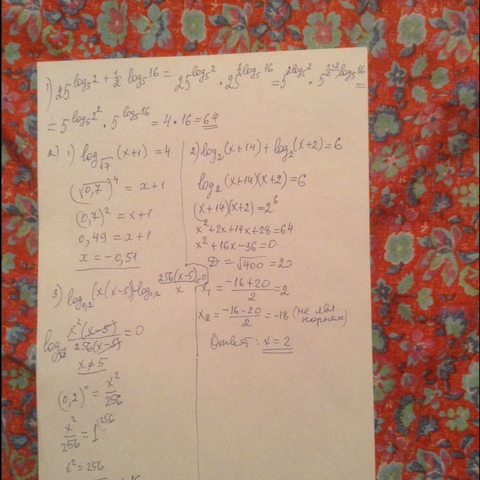 1) 25^(log₅2 + ½ log₅16) = 25^(log₅2) · 25^(½ log₅16) = 5^(2log₅2) · 5^((1·2/2) log₅16) =
= 5^(log₅2²) · 5^(log₅16) = 4 · 16 = 64
2) 1) log_√7 (x+1) = 4
(√0,7)⁴ = x+1
(0,7)² = x+1
0,49 = x+1
x = -0,51
2) log₂(x+14) + log₂(x+2) = 6
log₂(x+14)(x+2) = 6
(x+14)(x+2) = 2⁶
x² + 2x + 14x + 28 = 64
x² + 16x - 36 = 0
D = √400 = 20
x₁ = (-16+20)/2 = 2
x₂ = (-16-20)/2 = -18 (не явл. корнем)
Ответ: x = 2
3) log₀,₂(x(x-5)) + log₀,₂ 256(x-5)/x = 0
log₀,₂ x²(x-5)/256(x-5) = 0
x ≠ 5
(0,2)⁰ = x²/256
x²/256 = 1^(256
x² = 256